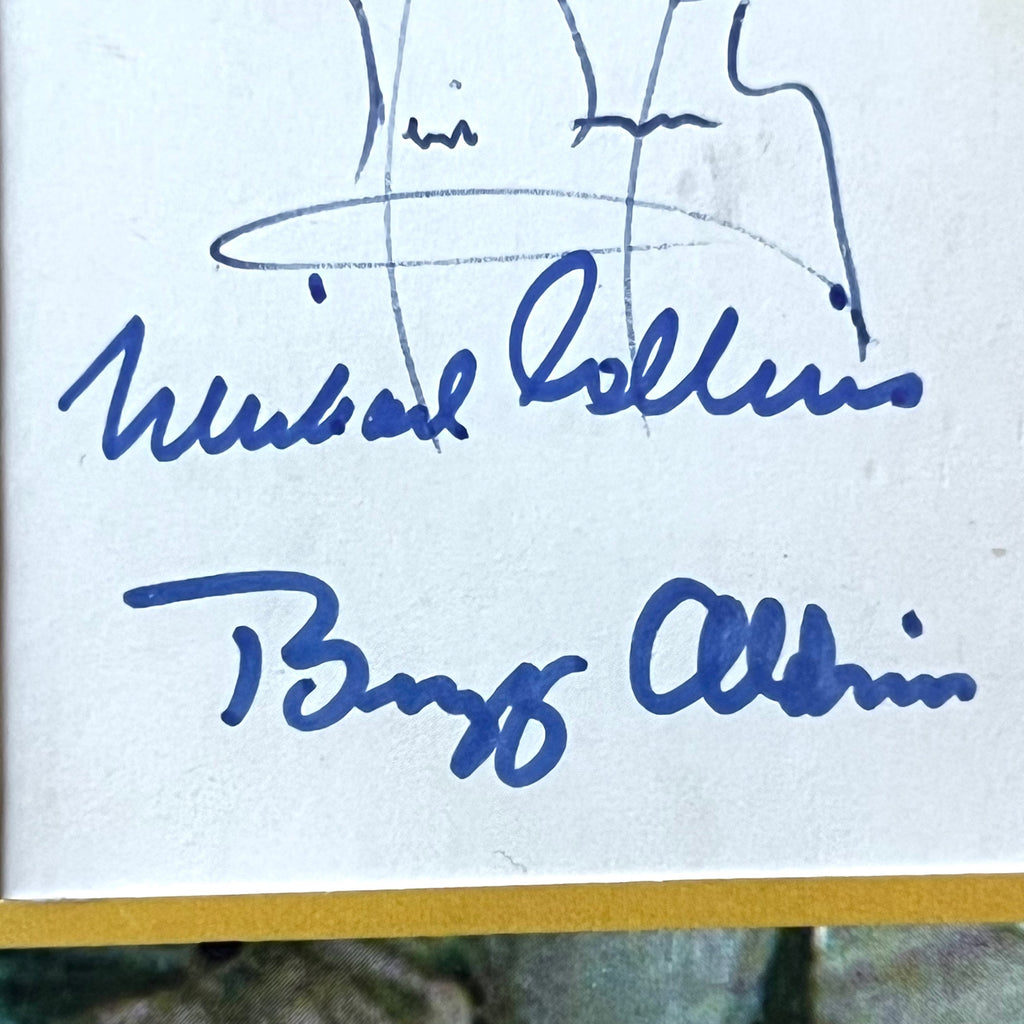 Michael Collins
Buzz Aldrin